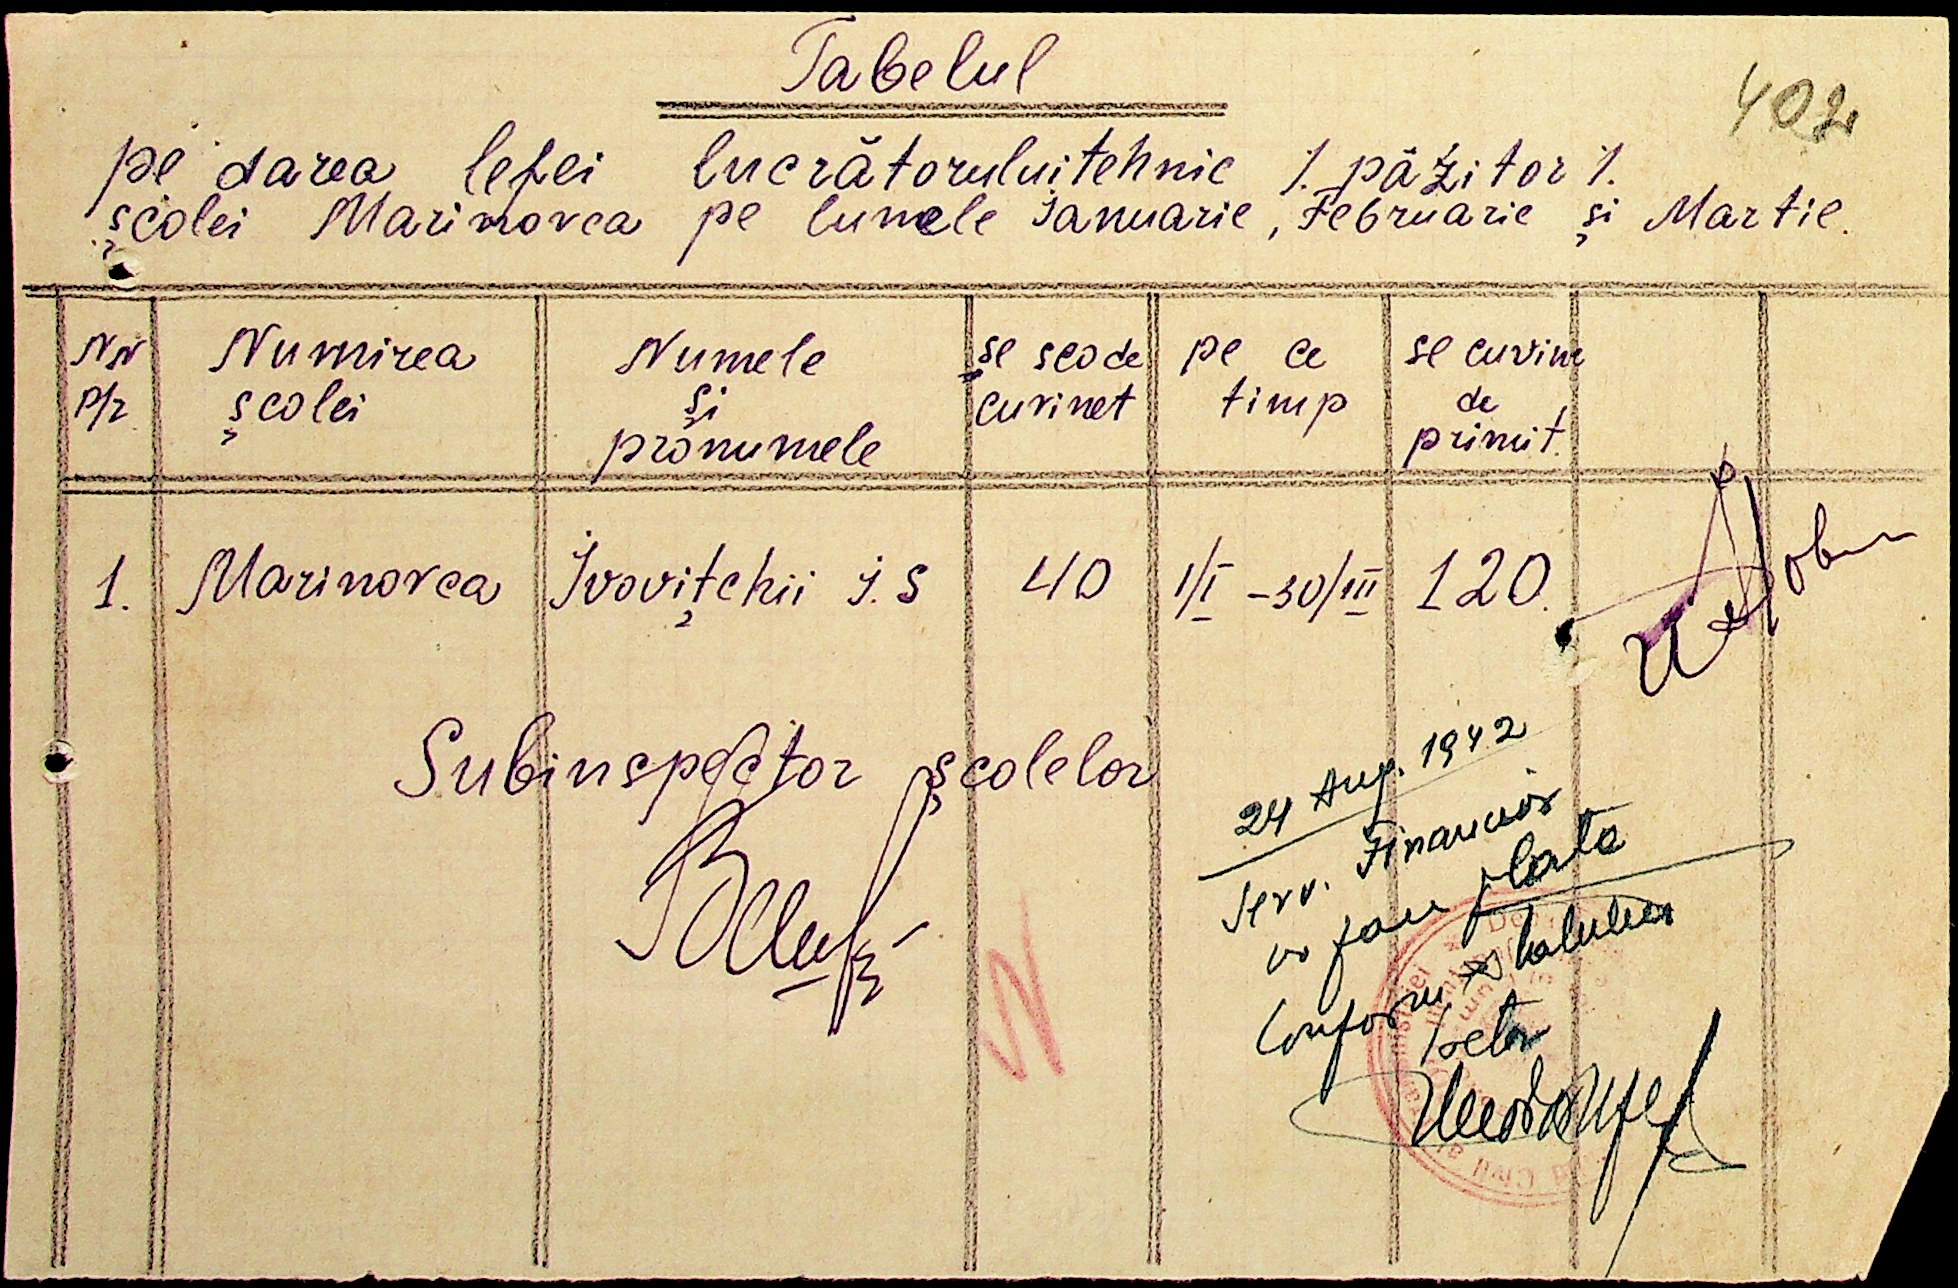 Tabelul
402
pe darea lefei lucrătoruluitehnic /. păzitor /.
școlei Marinovca pe lunele Ianuarie, Februarie și Martie.
NN Numirea Numele se scode pe ce se cuvine
p/r școlei și cuvinet timp de
pronumele primit.
1. Marinovca Ivovițchii I. S 40 1/I -30/III 120.
Subinspector școlelor
24 Aug. 1942
Serv. Financiar
va face plata
Conform